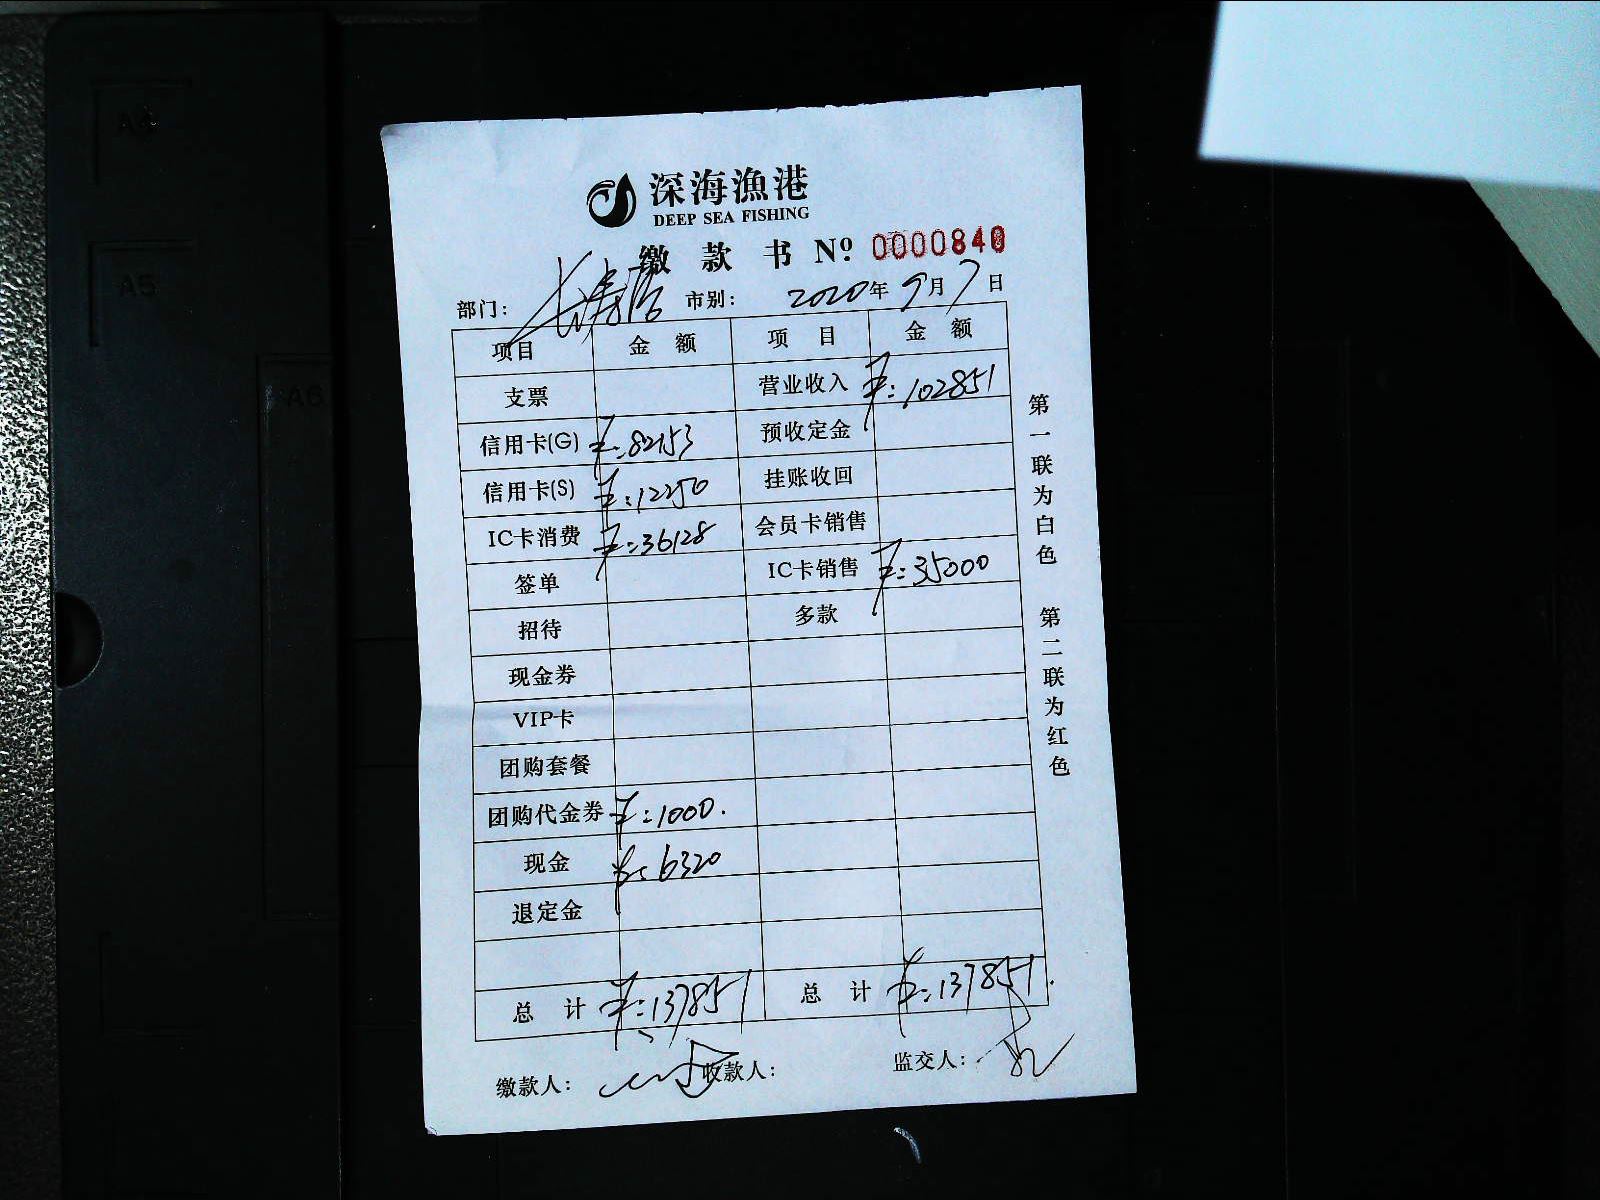 A4
A5
A6
深海漁港
DEEP SEA FISHING
缴款书 Nº 0000840
部门： 市别： 2020年9月7日
项目 金额 项目 金额
支票 营业收入 ¥:102851
信用卡(G) ¥:82153 预收定金
信用卡(S) ¥:12250 挂账收回
IC卡消费 ¥:36128 会员卡销售
签单 IC卡销售 ¥:35000
招待 多款
现金券
VIP卡
团购套餐
团购代金券 ¥:1000.
现金 ¥:6320
退定金
总计 ¥:137851 总计 ¥:137851.
缴款人： 收款人： 监交人：
第一联为白色 第二联为红色